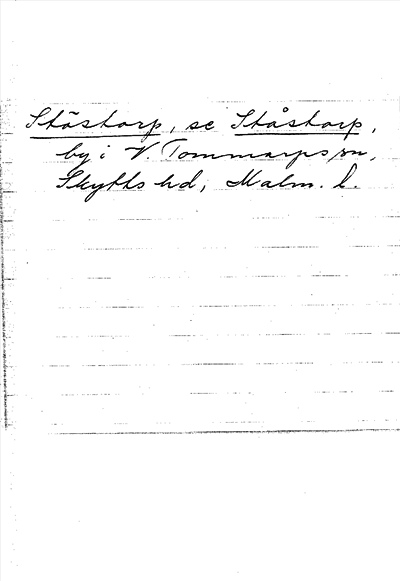 Stästorp, se Ståstorp,
by i V. Tommarps sn,
Skytts hd, Malm. l.